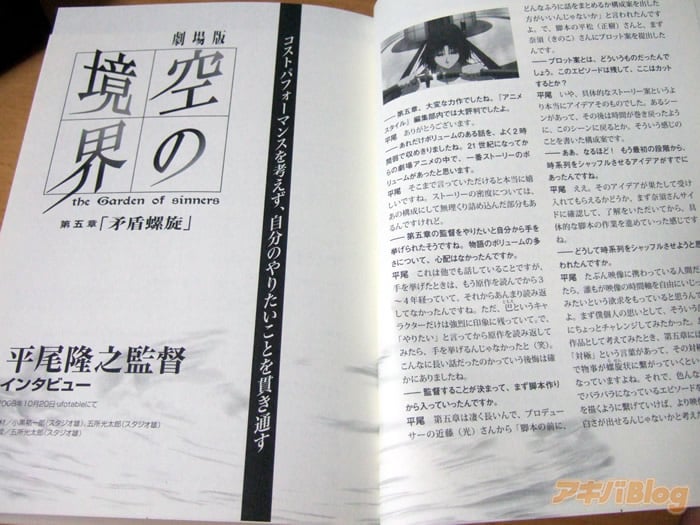 劇場版
空の境界
the Garden of sinners
第五章「矛盾螺旋」
コストパフォーマンスを考えず、自分のやりたいことを貫き通す
平尾隆之監督
インタビュー
2008年10月20日・ufotableにて
小黒祐一郎(スタジオ雄)、五所光太郎(スタジオ雄)
五所光太郎(スタジオ雄)
―― 第五章、大変な力作でしたね。「アニメ
スタイル」編集部内では大評判でしたよ。
平尾 ありがとうございます。
―― あれだけボリュームのある話を、よく2時
間弱で収めきりましたね。21世紀になってか
らの劇場アニメの中で、一番ストーリーのボ
リュームがあったと思います。
平尾 そこまで言っていただけると本当に嬉
しいですね。ストーリーの密度については、
あの構成にして無理くり詰め込んだ部分もあ
るんですけれど。
―― 第五章の監督をやりたいと自分から手を
挙げられたそうですね。物語のボリュームの多
さについて、心配はなかったんですか。
平尾 これは他でも話していることですが、
手を挙げたときは、もう原作を読んでから3
～4年経っていて、それからあんまり読み返
してなかったんですね。ただ、巴というキャ
ラクターだけは強烈に印象に残っていて。で、
「やりたい」と言ってから原作を読み返して
みたら、手を挙げるんじゃなかったと(笑)。
こんなに長い話だったのかっていう後悔は確
かにありましたね。
―― 監督することが決まって、まず脚本作り
から入っていったんですか。
平尾 第五章は凄く長いんで、プロデュー
サーの近藤(光)さんから「脚本の前に、
どんなふうに話をまとめるか構成案を出した
方がいいんじゃないか」と言われたんです
よ。で、脚本の平松(正樹)さんと、まず
奈須(きのこ)さんにプロット案を提出した
んです。
―― プロット案とは、どういうものだったんで
しょう。このエピソードは残して、ここはカット
するとか?
平尾 いや、具体的なストーリー案というよ
り本当にアイデアそのものでした。あるシー
ンがあって、その後は時間が巻き戻ったよう
に、このシーンに戻るとか。そういう感じの
ことを書いた構成案です。
―― ああ、なるほど! もう最初の段階から、
時系列をシャッフルするアイデアがすでに
あったんですね。
平尾 ええ。そのアイデアが果たして受け
入れてもらえるかどうか、まず奈須さんサイ
ドに確認して、了解をいただいてから、具
体的な脚本の作業を進めていった感じです
ね。
―― どうして時系列をシャッフルさせようと思
われたんですか。
平尾 たぶん映像に携わっている人間だっ
たら、誰もが映像の時間軸を自由にいじっ
てみたいという欲求をもっていると思うん